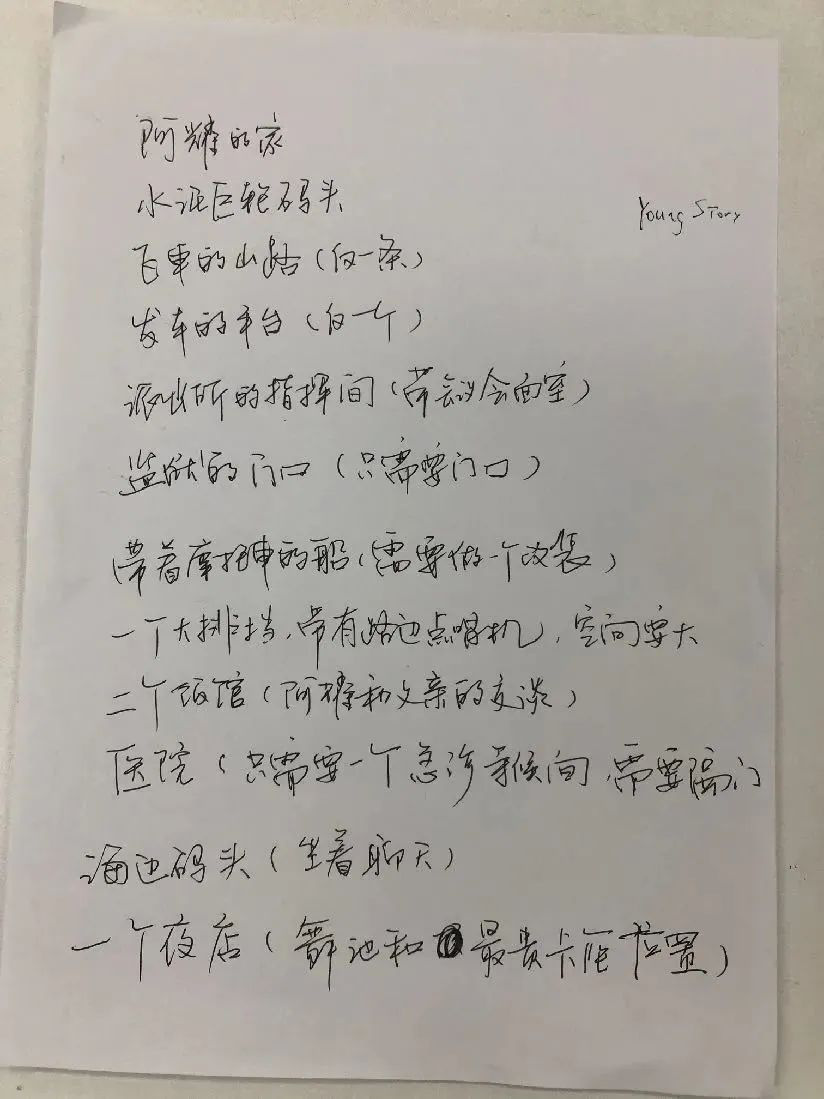 阿耀的家
水泥巨轮码头
Young Story
飞车的山路(仅一条)
发车的平台(仅一个)
派出所的指挥间(带会议会面室)
监狱的门口(只需要门口)
带着摩托车的船(需要做一个改装)
一个大排挡,带有路边点唱机,空间要大
二个饭馆(阿耀和父亲的交谈)
医院(只需要一个急诊等候间,需要隔门
海边码头(坐着聊天)
一个夜店(舞池和最贵卡座位置)